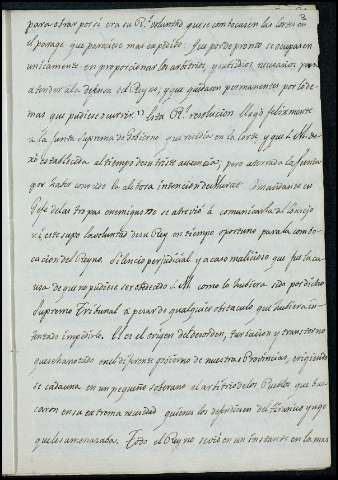 3
para obrar por sí era su Rl. voluntad que se combocasen las Cortes en
el parage que pareciese mas expedito. Que por de pronto se ocupasen
unicamente en proporcionar los arbitrios, y subsidios necesarios para
atender a la defensa del Reyno, y que quedasen permanentes por lo de
mas que pudiese ocurrir." Esta Rl. resolucion llegó felizmente
a la Junta Suprema de Gobierno que residia en la Corte, y que S.M. de
xó establecida al tiempo de su triste ausencia; pero aterrada la Junta
por haber conocido la aleve intencion de Murat Comandante en
Gefe de las tropas enemigas no se atrevió á comunicarla al Consejo
ni este supo la voluntad de su Rey en tiempo oportuno para la combo-
cacion del Reyno. Silencio perjudicial y acaso malicioso que fue la cau-
sa de que no pudiese ser obedecido S.M. como lo hubiera sido por dicho
Supremo Tribunal á pesar de qualquier obstaculo que hubiera in-
tentado impedirlo. El es el origen del desorden, turbacion y transtorno
que se ha notado en el diferente gobierno de nuestras Provincias, erigiendo
se cada una en un pequeño soberano al arbitrio de los Pueblos que bus-
caron en su extrema necesidad quienes los defendiesen del Frances yugo
que les amenazaba. Todo el Reyno se vió en un instante en la mas